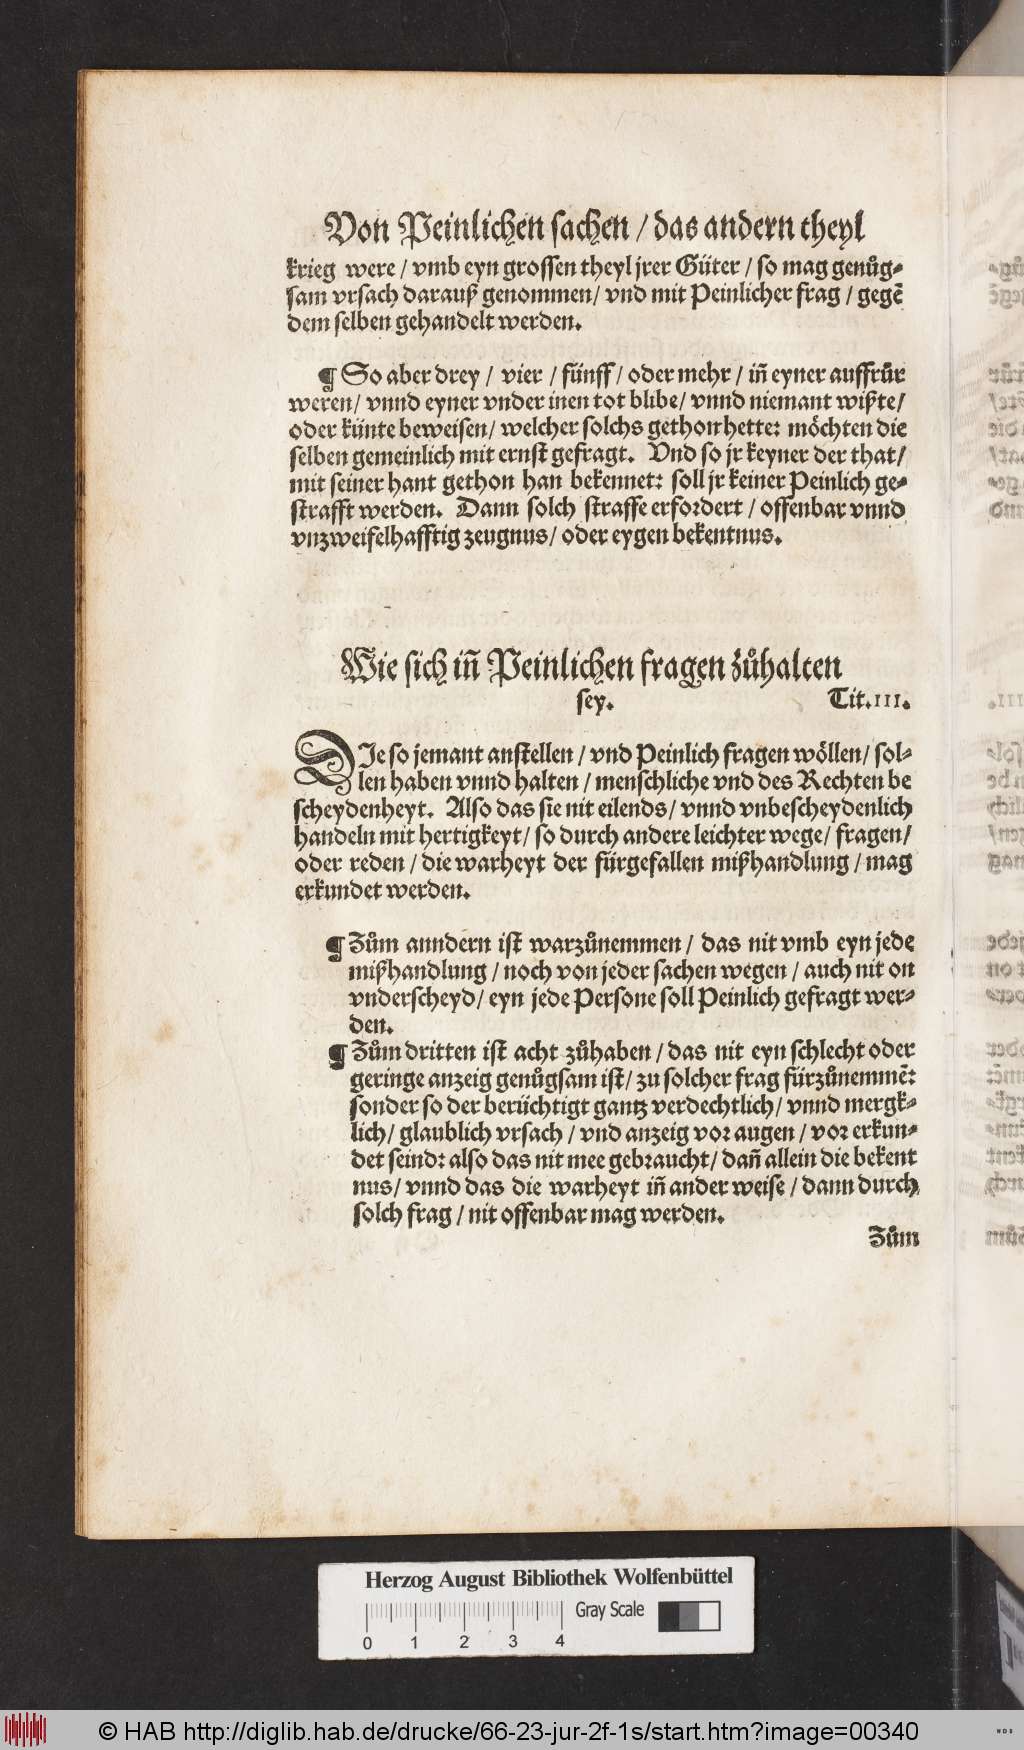 Von Peinlichen sachen / das andern theyl
krieg were / vmb eyn grossen theyl jrer Güter / so mag genůg⸗
sam vrsach darauß genommen / vnd mit Peinlicher frag / gegē
dem selben gehandelt werden.
¶ So aber drey / vier / fünff / oder mehr / iñ eyner auffrůr
weren / vnnd eyner vnder inen tot blibe / vnnd niemant wißte /
oder künte beweisen / welcher solchs gethon hette: möchten die
selben gemeinlich mit ernst gefragt. Vnd so jr keyner der that /
mit seiner hant gethon han bekennet: soll jr keiner Peinlich ge⸗
strafft werden. Dann solch straffe erfordert / offenbar vnnd
vnzweifelhafftig zeugnus / oder eygen bekentnus.
Wie sich iñ Peinlichen fragen zůhalten
sey. Tit. III.
DIe so jemant anstellen / vnd Peinlich fragen wöllen / sol⸗
len haben vnnd halten / menschliche vnd des Rechten be
scheydenheyt. Also das sie nit eilends / vnnd vnbescheydenlich
handeln mit hertigkeyt / so durch andere leichter wege / fragen /
oder reden / die warheyt der fürgefallen mißhandlung / mag
erkundet werden.
¶ Zům anndern ist warzůnemmen / das nit vmb eyn jede
mißhandlung / noch von jeder sachen wegen / auch nit on
vnderscheyd / eyn jede Persone soll Peinlich gefragt wer⸗
den.
¶ Zům dritten ist acht zůhaben / das nit eyn schlecht oder
geringe anzeig genůgsam ist / zu solcher frag fürzůnemmē:
sonder so der berüchtigt gantz verdechtlich / vnnd mergk⸗
lich / glaublich vrsach / vnd anzeig vor augen / vor erkun⸗
det seind: also das nit mee gebraucht / dañ allein die bekent
nus / vnnd das die warheyt iñ ander weise / dann durch
solch frag / nit offenbar mag werden.
Zům
Herzog August Bibliothek Wolfenbüttel
Gray Scale
0 1 2 3 4
© HAB http://diglib.hab.de/drucke/66-23-jur-2f-1s/start.htm?image=00340